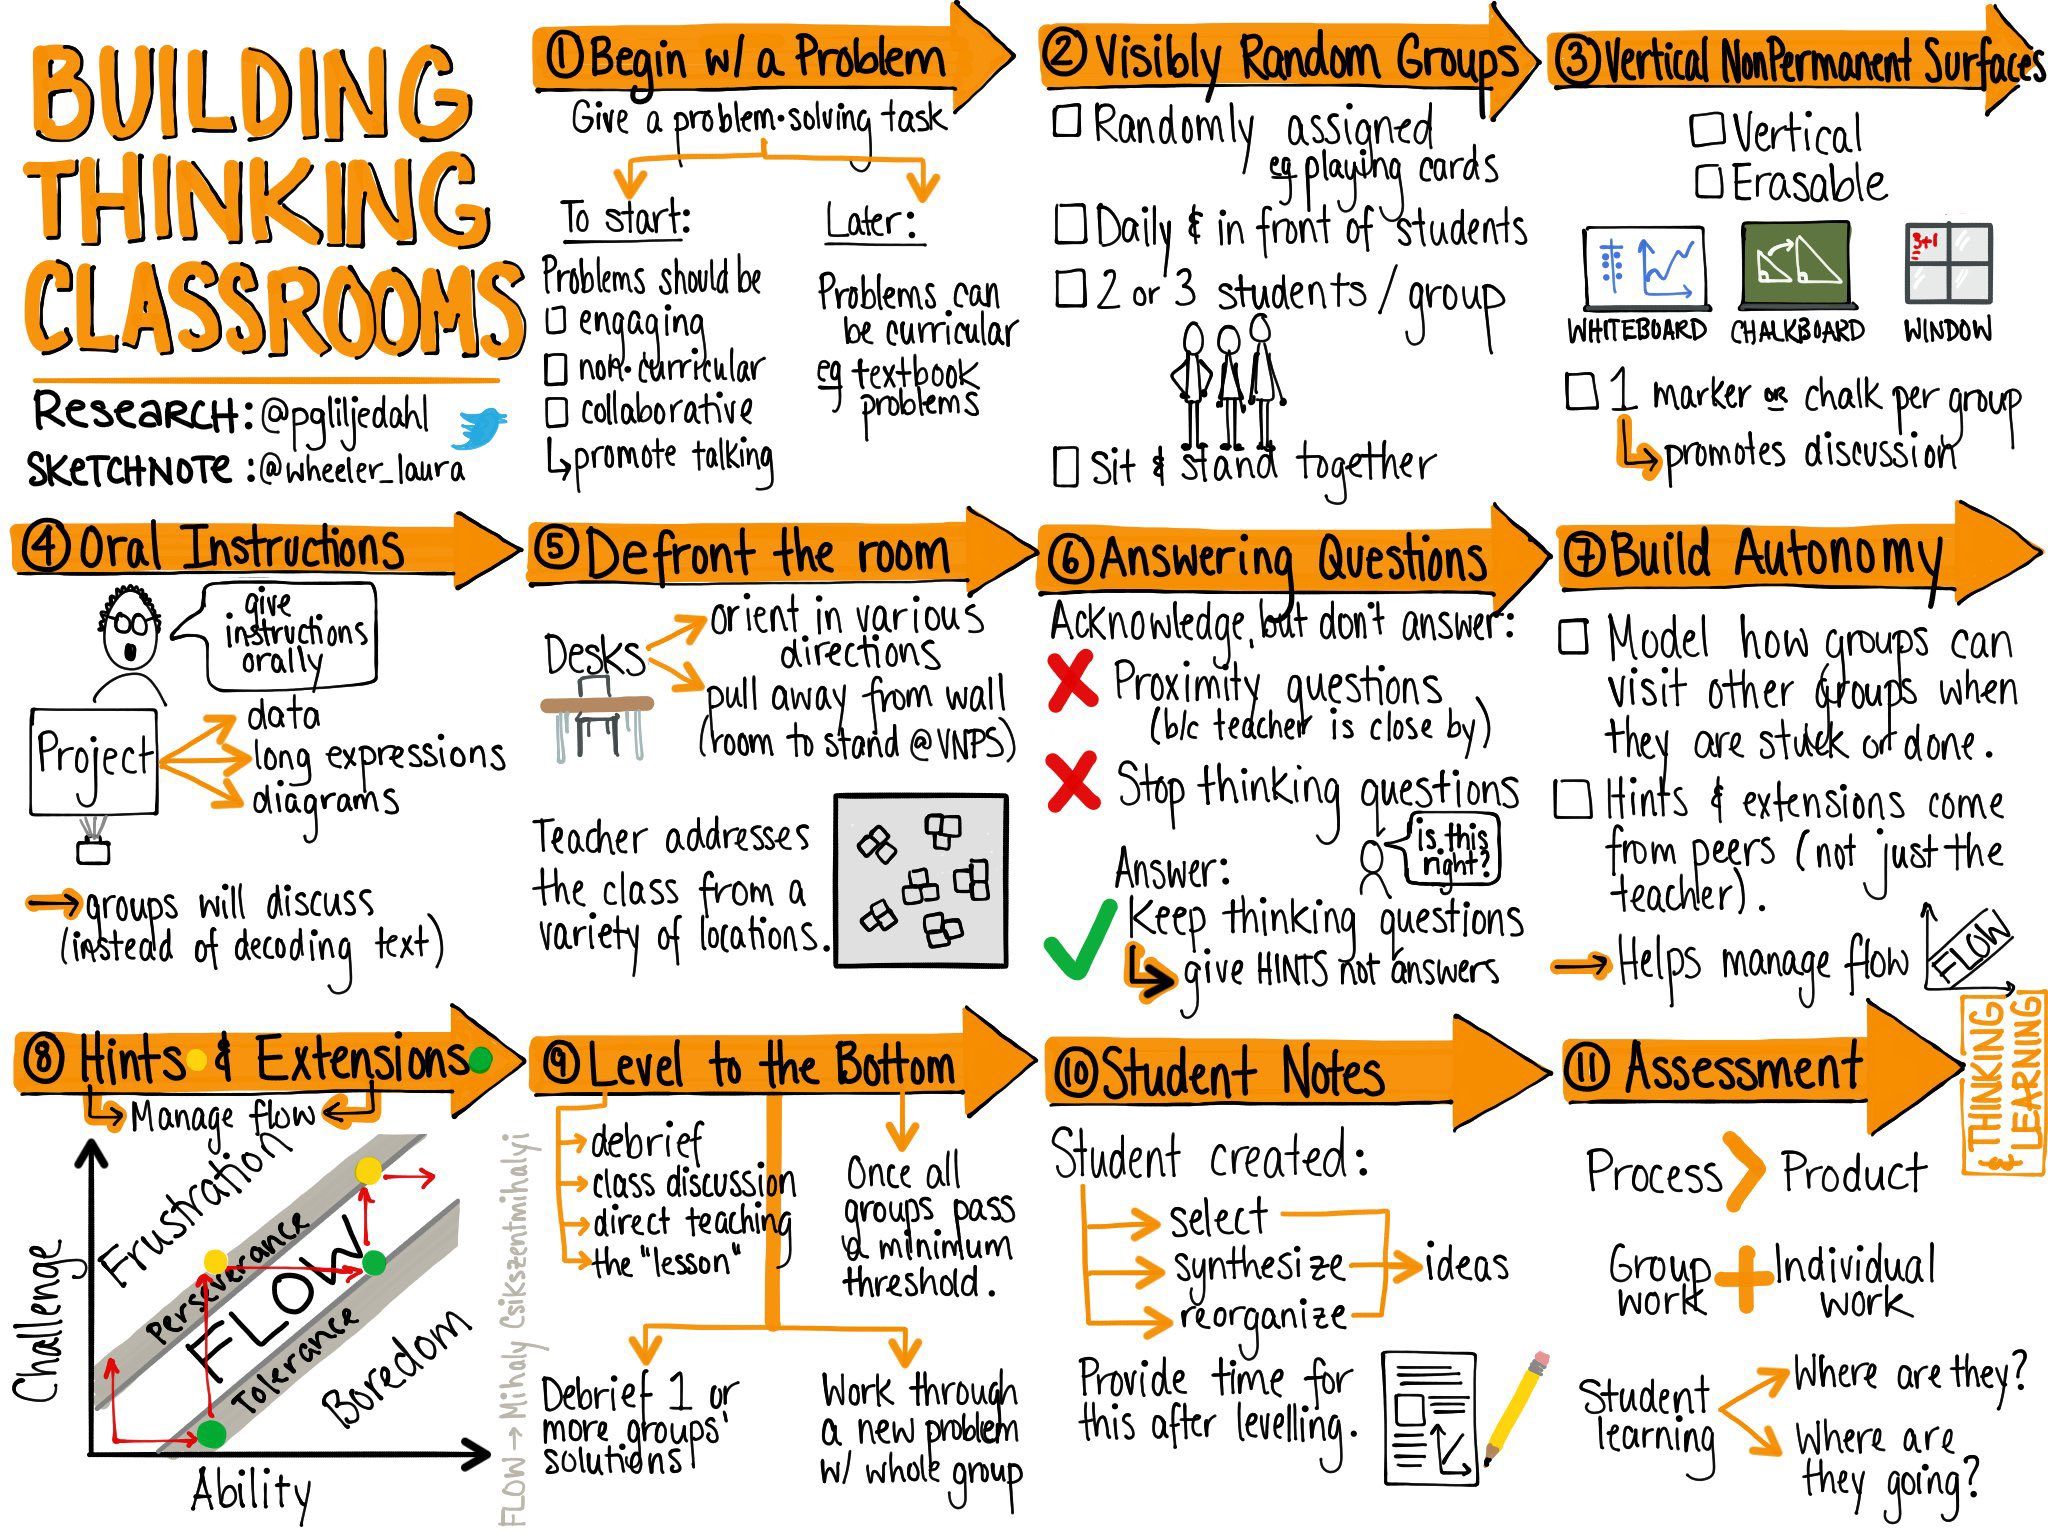 BUILDING
THINKING
CLASSROOMS
RESEARCH: @pgliljedahl
SKETCHNOTE: @wheeler_laura
① Begin w/ a Problem
Give a problem·solving task
To start:
Problems should be
engaging
non·curricular
collaborative
promote talking
Later:
Problems can
be curricular
eg textbook
problems
② Visibly Random Groups
Randomly assigned
eg playing cards
Daily & in front of students
2 or 3 students / group
Sit & stand together
③ Vertical NonPermanent Surfaces
Vertical
Erasable
3+1
WHITEBOARD CHALKBOARD WINDOW
1 marker or chalk per group
promotes discussion
④ Oral Instructions
give
instructions
orally
Project
data
long expressions
diagrams
groups will discuss
(instead of decoding text)
⑤ Defront the room
Desks
orient in various
directions
pull away from wall
(room to stand @ VNPS)
Teacher addresses
the class from a
variety of locations.
⑥ Answering Questions
Acknowledge, but don't answer:
Proximity questions
(b/c teacher is close by)
Stop thinking questions
is this
right?
Answer:
Keep thinking questions
give HINTS not answers
⑦ Build Autonomy
Model how groups can
visit other groups when
they are stuck or done.
Hints & extensions come
from peers (not just the
teacher).
Helps manage flow
FLOW
⑧ Hints & Extensions
Manage flow
Challenge
Frustration
Perseverance
FLOW
Tolerance
Boredom
Ability
FLOW → Mihaly Csikszentmihalyi
⑨ Level to the Bottom
debrief
class discussion
direct teaching
the "lesson"
Once all
groups pass
a minimum
threshold.
Debrief 1 or
more groups'
solutions
Work through
a new problem
w/ whole group
⑩ Student Notes
Student created:
select
synthesize
reorganize
ideas
Provide time for
this after levelling.
⑪ Assessment
THINKING
& LEARNING
Process > Product
Group
work
+
Individual
work
Student
learning
Where are they?
Where are
they going?